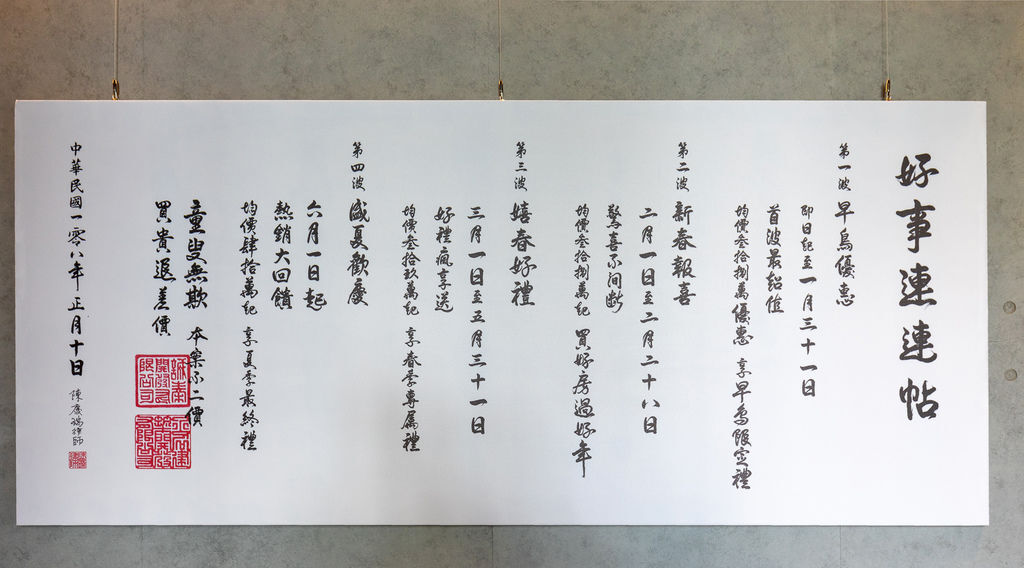 好事連連帖
第一波 早鳥優惠
即日起至一月三十一日
首波最超值
均價叁拾捌萬優惠 享早鳥限定禮
第二波 新春報喜
二月一日至二月二十八日
驚喜不間斷
均價叁拾捌萬起 買好房過好年
第三波 嬉春好禮
三月一日至五月三十一日
好禮瘋享送
均價叁拾玖萬起 享春季專屬禮
第四波 盛夏歡慶
六月一日起
熱銷大回饋
均價肆拾萬起 享夏季最終禮
童叟無欺 本案不二價
買貴退差價
中華民國一零八年正月十日